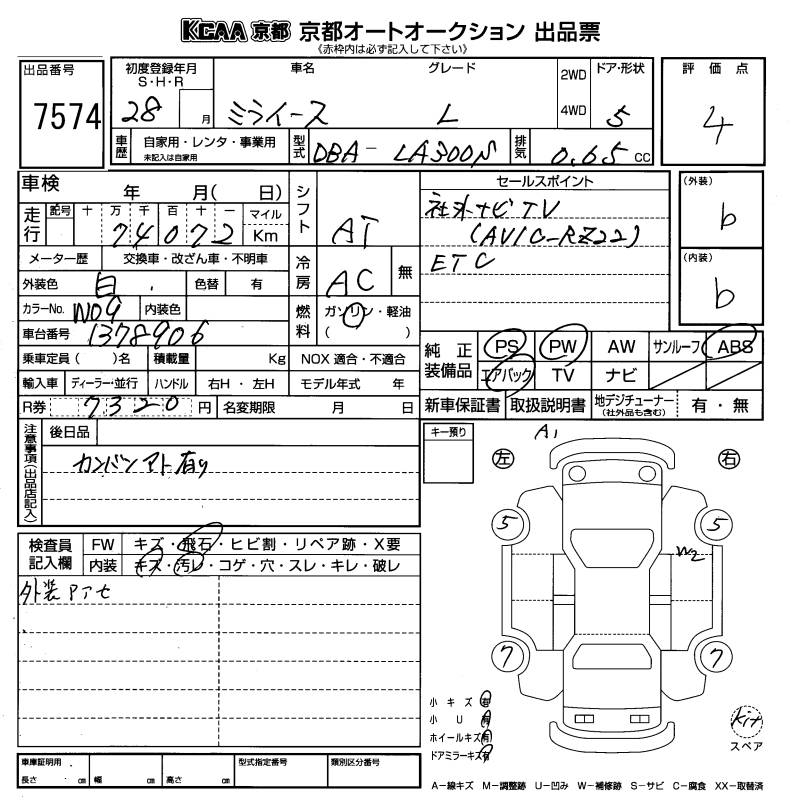 KCAA 京都 京都オートオークション 出品票
《赤枠内は必ず記入して下さい》
出品番号
7574
初度登録年月
S・H・R
28 月
車名
ミライース
グレード
L
2WD
4WD
ドア・形状
5
評価点
4
車歴
自家用・レンタ・事業用
未記入は自家用
型式
DBA- LA300S
排気
0.65 cc
車検 年 月( 日)
走行
記号 十 万 千 百 十 一 マイル
74072 Km
メーター歴 交換車・改ざん車・不明車
外装色 白 色替 有
カラーNo. W09 内装色
車台番号 1378906
乗車定員( )名 積載量 Kg
輸入車 ディーラー・並行 ハンドル 右H・左H
R券 7320 円 名変期限 月 日
シフト
AT
冷房
AC 無
燃料
ガソリン・軽油
( )
NOX 適合・不適合
モデル年式 年
セールスポイント
社外ナビTV
(AVIC-RZ22)
ETC
(外装)
b
(内装)
b
純正装備品
PS PW AW サンルーフ ABS
エアバック TV ナビ
新車保証書 取扱説明書 地デジチューナー
(社外品も含む) 有・無
注意事項(出品店記入)
後日品
カンバンアト有り
キー預り
A1
左 右
5 5
W2
7 7
検査員記入欄
FW キズ・飛石・ヒビ割・リペア跡・X要
内装 キズ・汚レ・コゲ・穴・スレ・キレ・破レ
外装アセ
小キズ 有
小U 有
ホイールキズ 有
ドアミラーキズ 有
kit
スペア
車庫証明用
長さ cm 幅 cm 高さ cm
型式指定番号
類別区分番号
A―線キズ M―調整跡 U―凹み W―補修跡 S―サビ C―腐食 XX―取替済